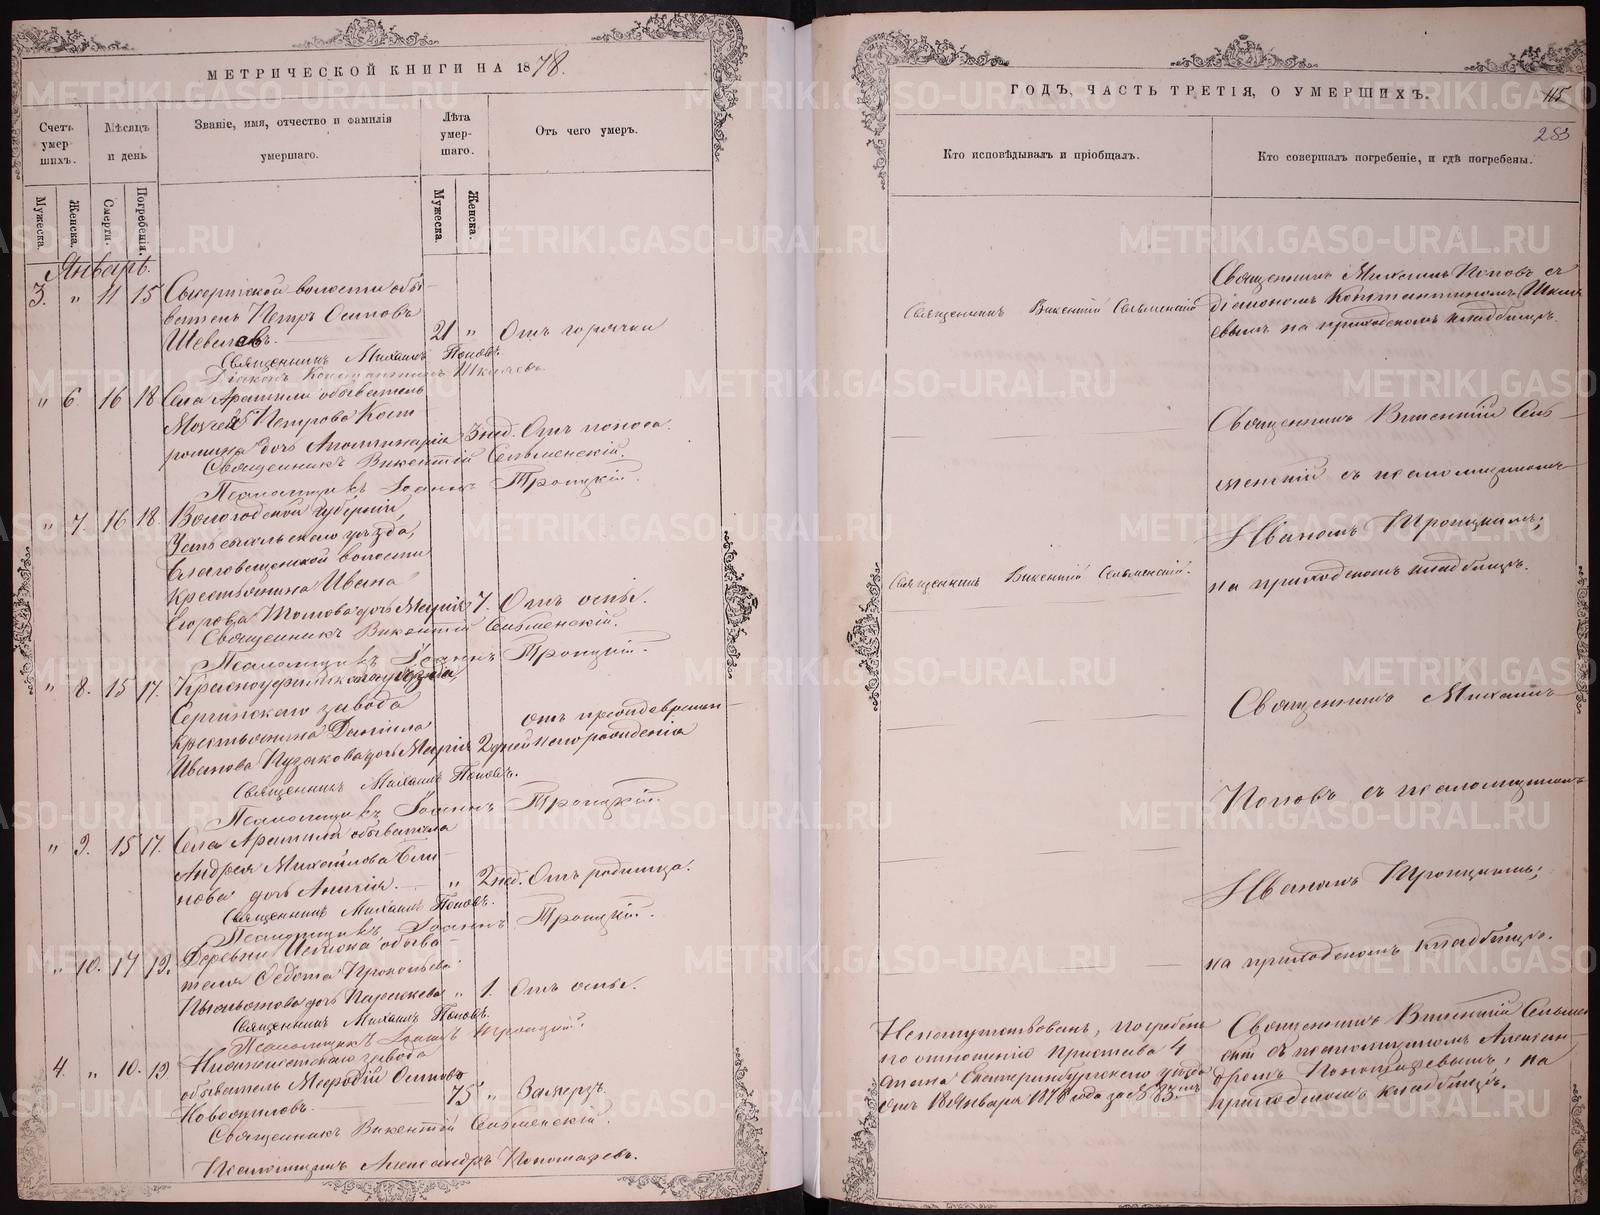 МЕТРИЧЕСКОЙ КНИГИ НА 1878.
Счетъ умер-шихъ.
Мѣсяцъ и день
Званіе, имя, отчество и фамилія умершаго.
Лѣта умер-шаго.
Отъ чего умеръ.
Мужеска. Женска. Смерти. Погребенія. Мужеска. Женска.
Январь.
3. " 11 15 Сысертской волости обы-
ватель Петръ Осиповъ
Шевелевъ. 21 " Отъ горячки
Священникъ Михаилъ Поповъ.
Діаконъ Константинъ
" 6. 16 18 Села Арамили обыватель
Моисей Петрова Кост-
ромина дочь Аполлинарія 3 нед. Отъ поноса.
Священникъ Викентій Сельменскій.
Псаломщикъ Іоаннъ Троицкій.
" 7. 16 18. Вологодской губерніи,
Устьсысольскаго уѣзда,
Благовещенской волости
Крестьянина Ивана
Егорова дочь Марія 7. Отъ оспы.
Священникъ Викентій Сельменскій.
Псаломщикъ Іоаннъ Троицкій.
" 8. 15 17. Красноуфимскаго уѣзда,
Сергинскаго завода
крестьянина Даніила
Иванова Пузакова дочь Марія 2 дней отъ преждевремен-
наго рожденія
Священникъ Михаилъ Поповъ.
Псаломщикъ Іоаннъ Троицкій.
" 9. 15 17. Села Арамили обывателя
Андрея Михайлова Бли-
нова дочь " 2 нед. Отъ родимца.
Священникъ Михаилъ Поповъ.
Псаломщикъ Іоаннъ Троицкій.
" 10. 17 19. Деревни обыва-
теля Федота Прокопьева
дочь " 1. Отъ оспы.
Священникъ Михаилъ Поповъ.
Псаломщикъ Іоаннъ Троицкій.
4. " 10. 19 Нижнеисетскаго завода
обыватель Мефодій Осиповъ
Новосиловъ. 75 " Замерзъ.
Священникъ Викентій Сельменскій.
Псаломщикъ Александръ Пономаревъ.
ГОДЪ, ЧАСТЬ ТРЕТІЯ, О УМЕРШИХЪ.
115
283
Кто исповѣдывалъ и пріобщалъ.
Кто совершалъ погребеніе, и гдѣ погребены.
Священникъ Викентій Сельменскій
Священникъ Михаилъ Поповъ съ
діакономъ Константиномъ
на приходскомъ кладбищѣ.
Священникъ Викентій Сель-
менскій съ псаломщикомъ
Иваномъ Троицкимъ;
на приходскомъ кладбищѣ.
Священникъ Викентій Сельменскій.
Священникъ Михаилъ
Поповъ съ псаломщикомъ
Иваномъ Троицкимъ;
на приходскомъ кладбищѣ.
погребенъ
по отношенію Пристава 4
стана Екатеринбургскаго уѣзда
отъ 18 Января 1878 года за № 83мъ
Священникъ Викентій Сельмен-
скій съ псаломщикомъ Алексан-
дромъ Пономаревымъ, на
приходскомъ кладбищѣ.
METRIKI.GASO-URAL.RU